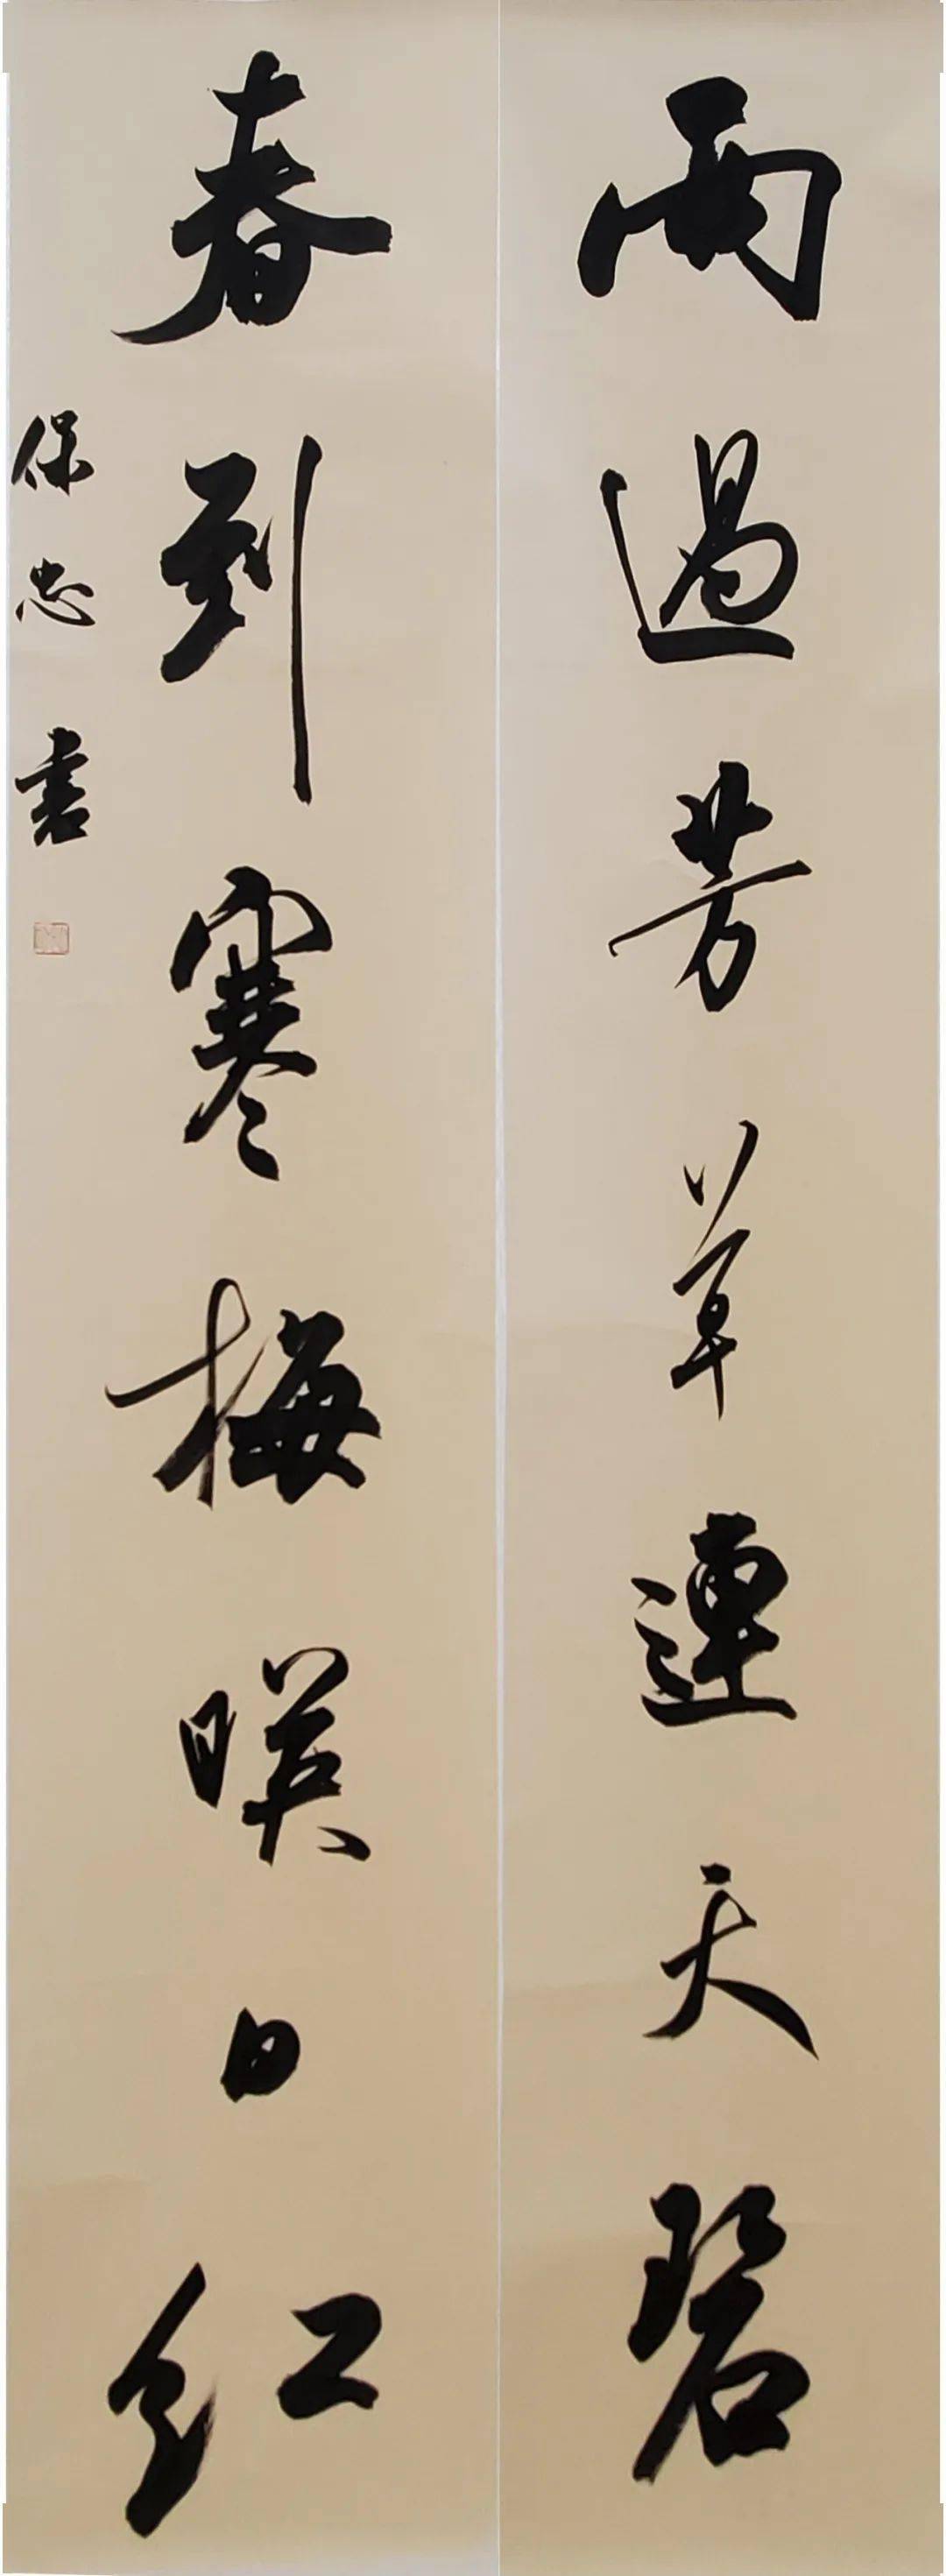 雨過芳草連天碧
春到寒梅暎日红
保忠書